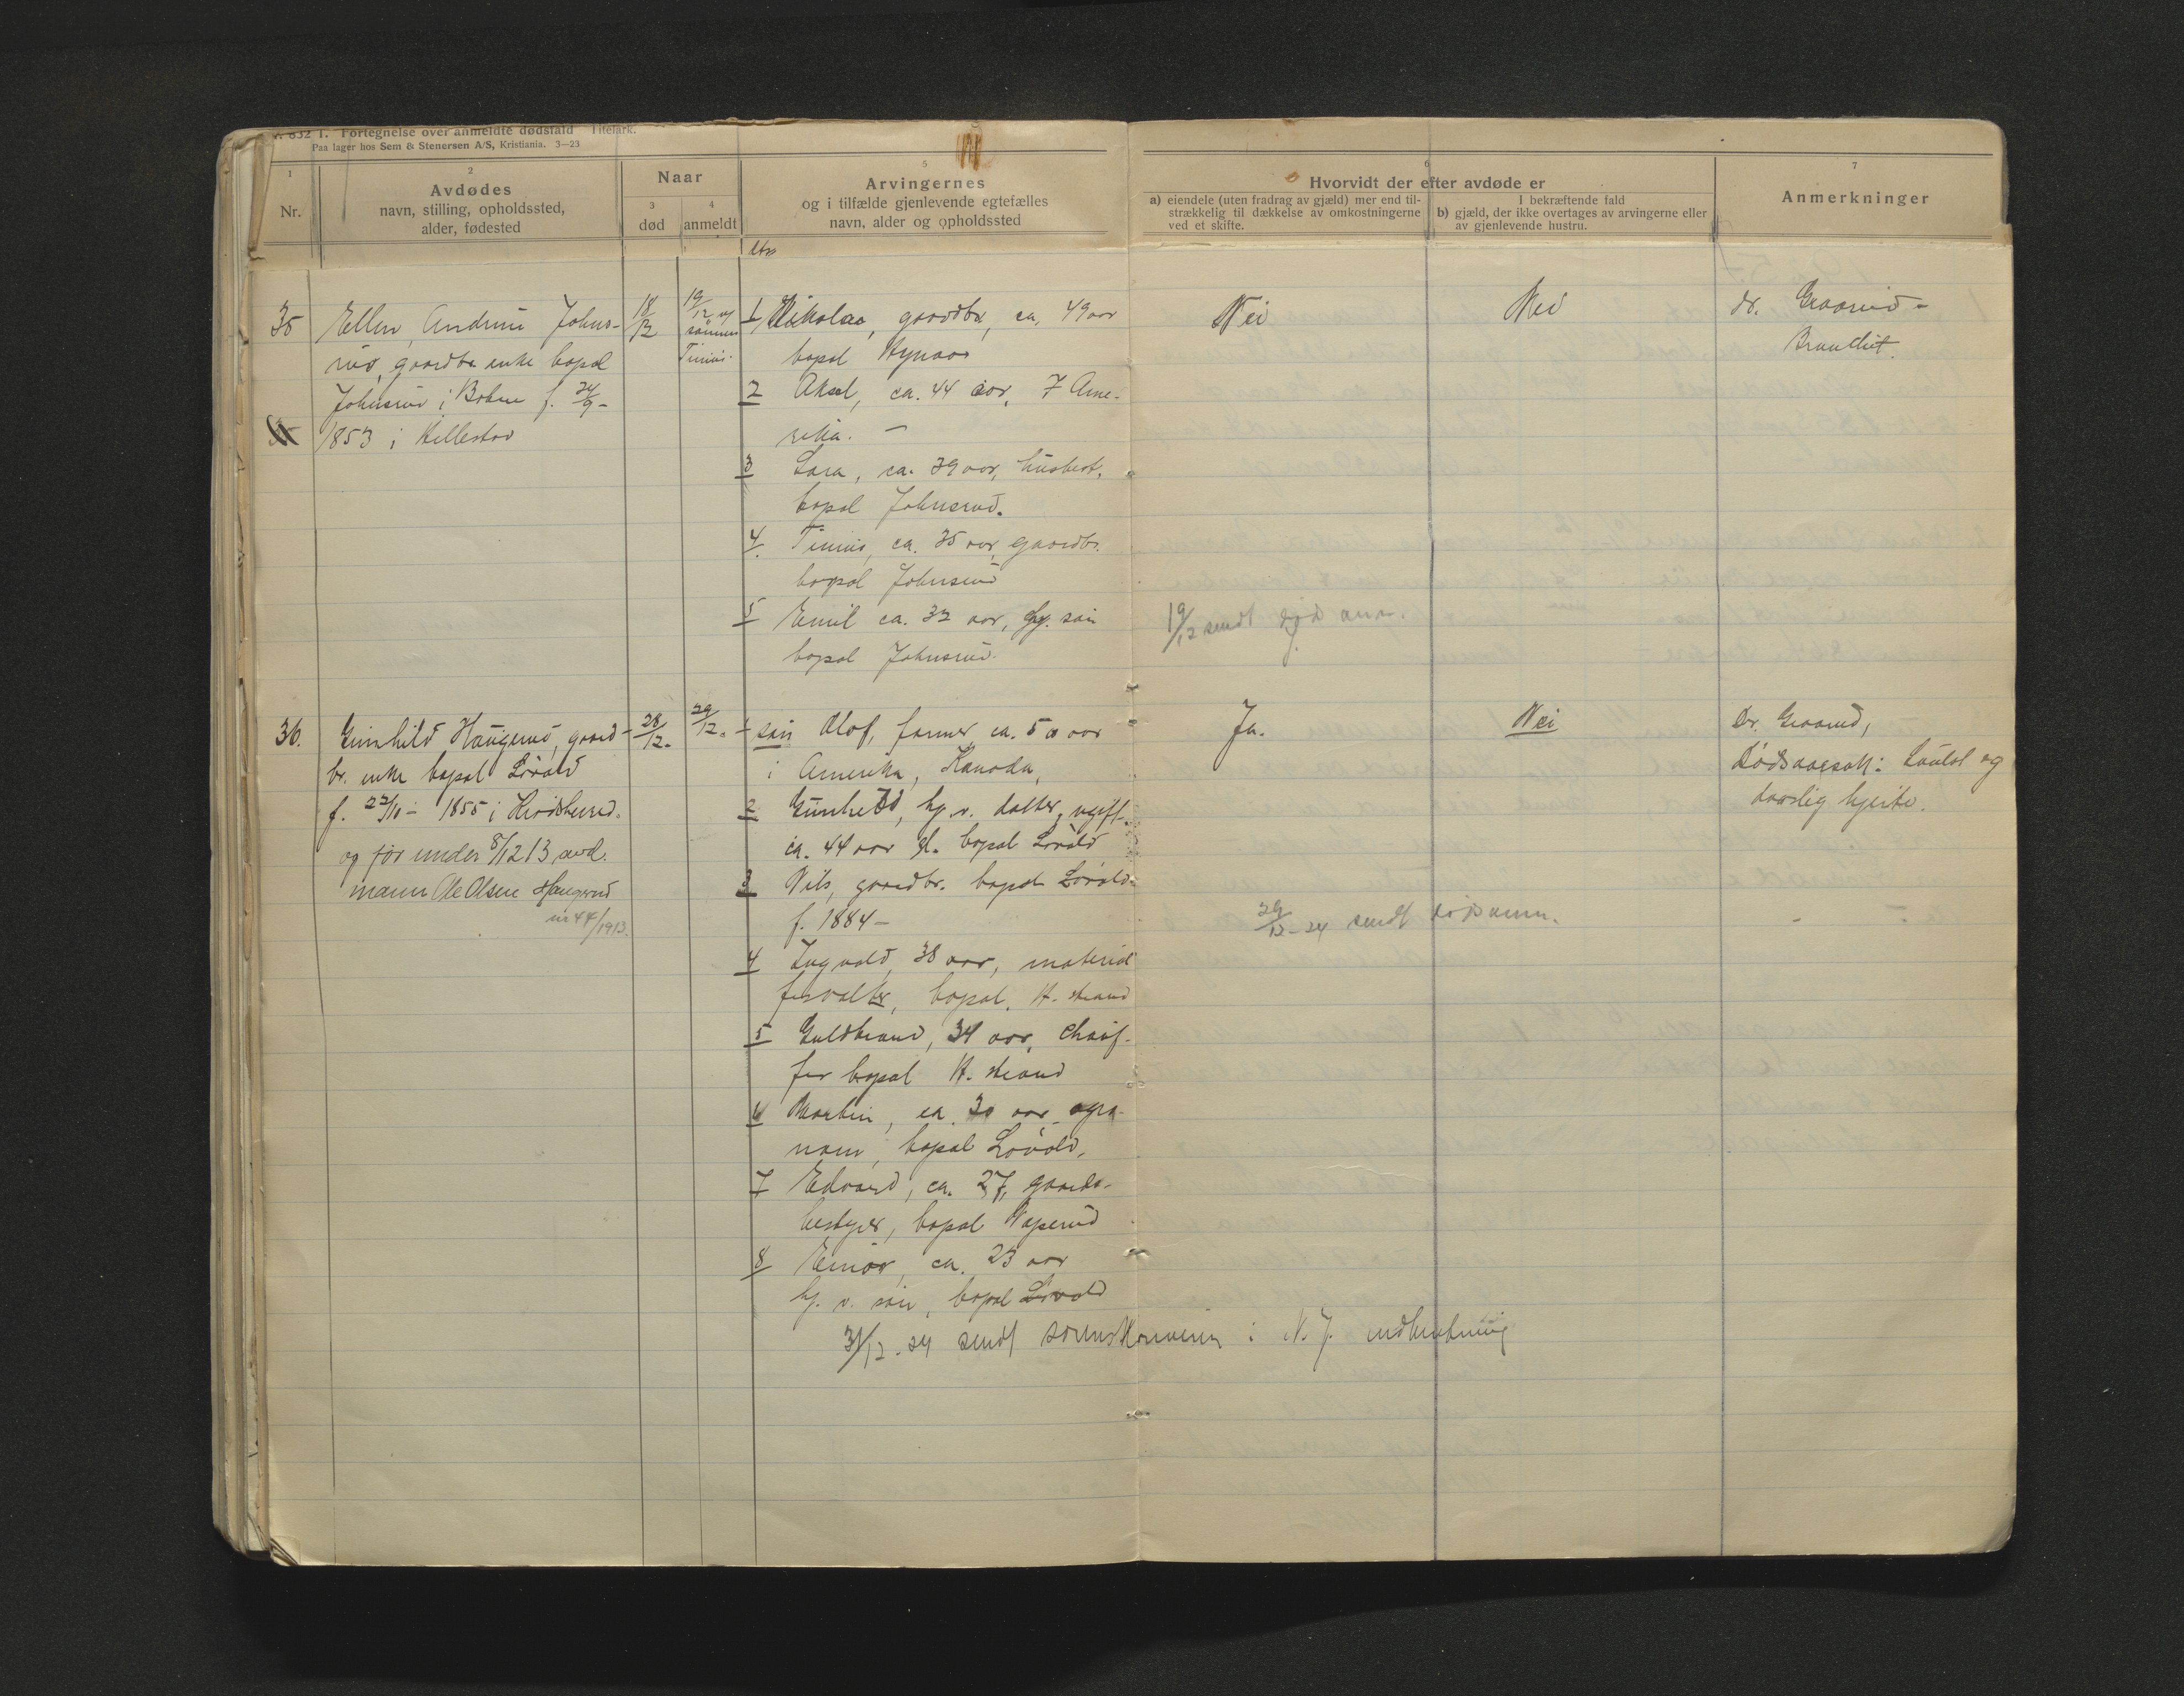 632 1. Fortegnelse over anmeldte dødsfald Titelark.
Paa lager hos Sem & Stenersen A/S, Kristiania. 3—23
1
Nr.
2
Avdødes
navn, stilling, opholdssted,
alder, fødested
Naar
3
død
4
anmeldt
5
Arvingernes
og i tilfælde gjenlevende egtefælles
navn, alder og opholdssted
6
Hvorvidt der efter avdøde er
a) eiendele (uten fradrag av gjæld) mer end til-
strækkelig til dækkelse av omkostningerne
ved et skifte.
I bekræftende fald
b) gjæld, der ikke overtages av arvingerne eller
av gjenlevende hustru.
7
Anmerkninger
35
Ellen Andrine Johns-
rud, gaardbr. enke bopæl
Johnsrud i Botne f. 24/9-
1853 i Hillestad
18/12
19/12 av
sønnen
Tinius.
1 Nikolai, gaardbr, ca. 49 aar
bopæl
2 Aksel, ca. 44 aar, i Ame-
rika. —
3 Lara, ca. 39 aar, husbest.
bopæl Johnsrud.
4. Tinius, ca. 35 aar, gaardbr.
bopæl Johnsrud
5 Emil ca. 32 aar, søn
bopæl Johnsrud.
Nei
Nei
dr. Graarud -
Bronchit.
19/12 sendt anm.
36.
Gunhild Haugerud, gaard-
br. enke bopæl Løvald
f. 22/10 - 1855 i Hvidtsten.
og før under 8/12 13 avd.
mann Ole Olsen Haugerud
nr 44/1913.
28/12.
29/12.
1 søn Olof, farmer, ca. 50 aar
i Amerika, Kanada,
2 Gunhild, hj. v. datter, ugift.
ca. 44 aar gl. bopæl Løvald
3 Nils, gaardbr. bopæl Løvald
f. 1884 —
4 Ingvald, 38 aar, material
forvalter, bopæl. H. strand
5 Guldbrand, 34 aar, chauf-
før bopæl H. strand
6 Martin, ca. 30 aar agro-
nom, bopæl Løvald,
7 Edvard, ca. 27, gaards-
bestyrer, bopæl
8 Einar, ca. 23 aar
hj. v. søn, bopæl Løvald
Ja.
Nei
Dr. Graarud,
Dødsaarsak: og
daarlig hjerte.
29/12-24 sendt anm.
31/12-24 sendt sorenskriveren i N. J. indberetning